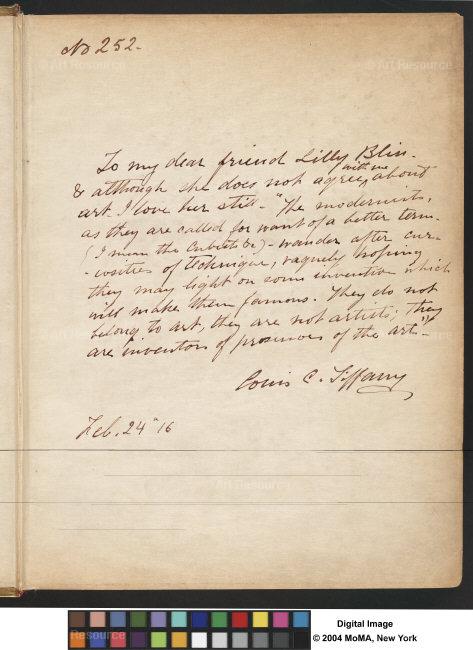 No 252.
To my dear friend Lilly Blis-
with me
& although she does not agree, about
art. I love her still - "The modernists,
as they are called for want of a better term-
(I mean the Cubists &c) - wander after cur-
-iosities of technique, vaguely hoping
they may light on some invention which
will make them famous. They do not
belong to art, they are not artists; they
are inventors of processes of the art-"
Louis C. Tiffany
Feb. 24" 16
© Art Resource
© Art Resource
Art Resource
© Art Resource
Resource
Digital Image
© 2004 MoMA, New York